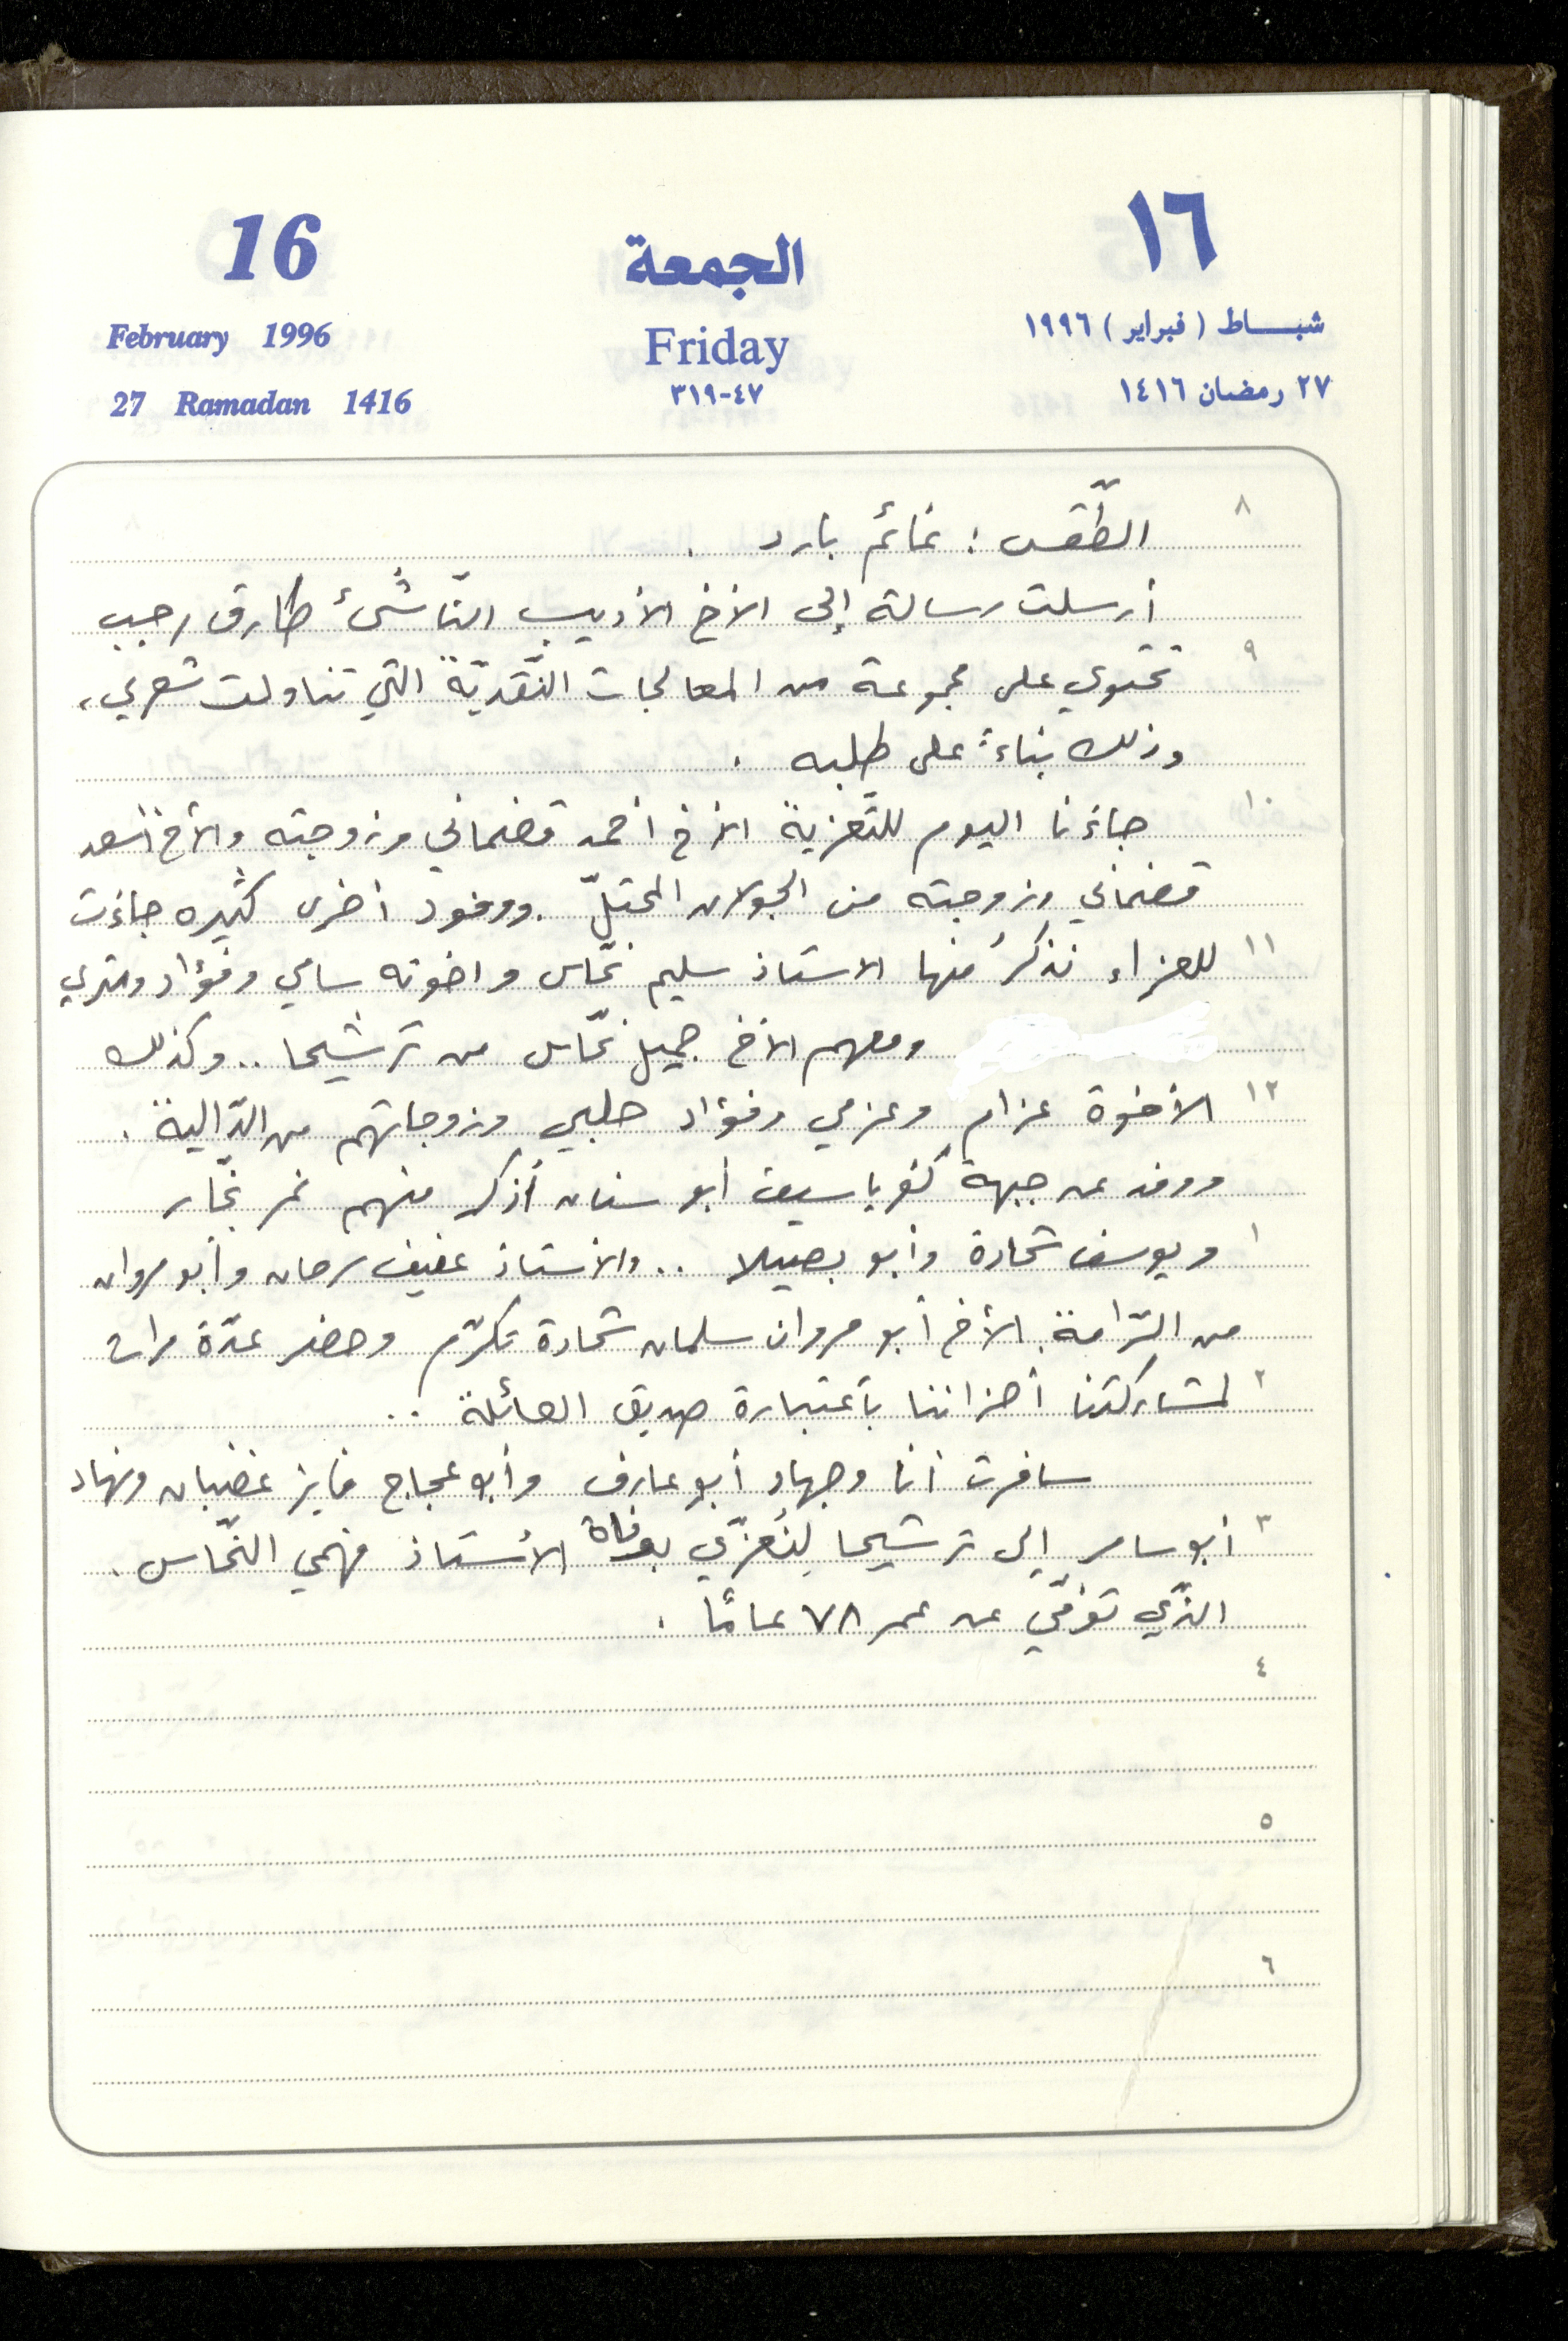 16
الجمعة
١٦
February 1996
Friday
شبـــاط (فبراير) ١٩٩٦
27 Ramadan 1416
٣١٩-٤٧
٢٧ رمضان ١٤١٦
٨
الطّقس : غائم بارد .
أرسلت رسالة إلى الأخ الأديب النّاشئ طارق رجب
٩
تحتوي على مجموعة من المعالجات النّقديّة التي تناولت شعري،
وذلك بناءً على طلبه .
١٠
جاءَنا اليوم للتّعزية الأخ أحمد قضماني وزوجته والأخ أسعد
قضماني وزوجته من الجولان المحتلّ . ووفود أخرى كثيره جاءَت
١١ للعزاء نذكرُ منها الاستاذ سليم نحّاس واخوته سامي وفؤاد
ومعهم الأخ جميل نحّاس من ترشيحا .. وكذلك
١٢ الأخوة عزام وعزمي وفؤاد حلبي وزوجاتهم من الدّالية .
ووفد عن جبهة كفرياسيف أبو سنان أذكر منهم نمر نجّار
١ ويوسف شحادة وأبو بصيلا .. والأستاذ عفيف سرحان وأبو مروان
من الرّامة . الأخ أبو مروان سلمان شحادة تكرّم وحضر عدّة مرات
٢ لمشاركتنا أحزاننا بأعتباره صديق العائلة ..
سافرت أنا وجهاد أبو عارف وأبو عجاج فايز غضبان ونهاد
٣ أبو سامر إلى ترشيحا لِنُعزّي بوفاة الأستاذ فهمي النحّاس .
الذّي توفّي عن عمر ٧٨ عامًا .
٤
٥
٦